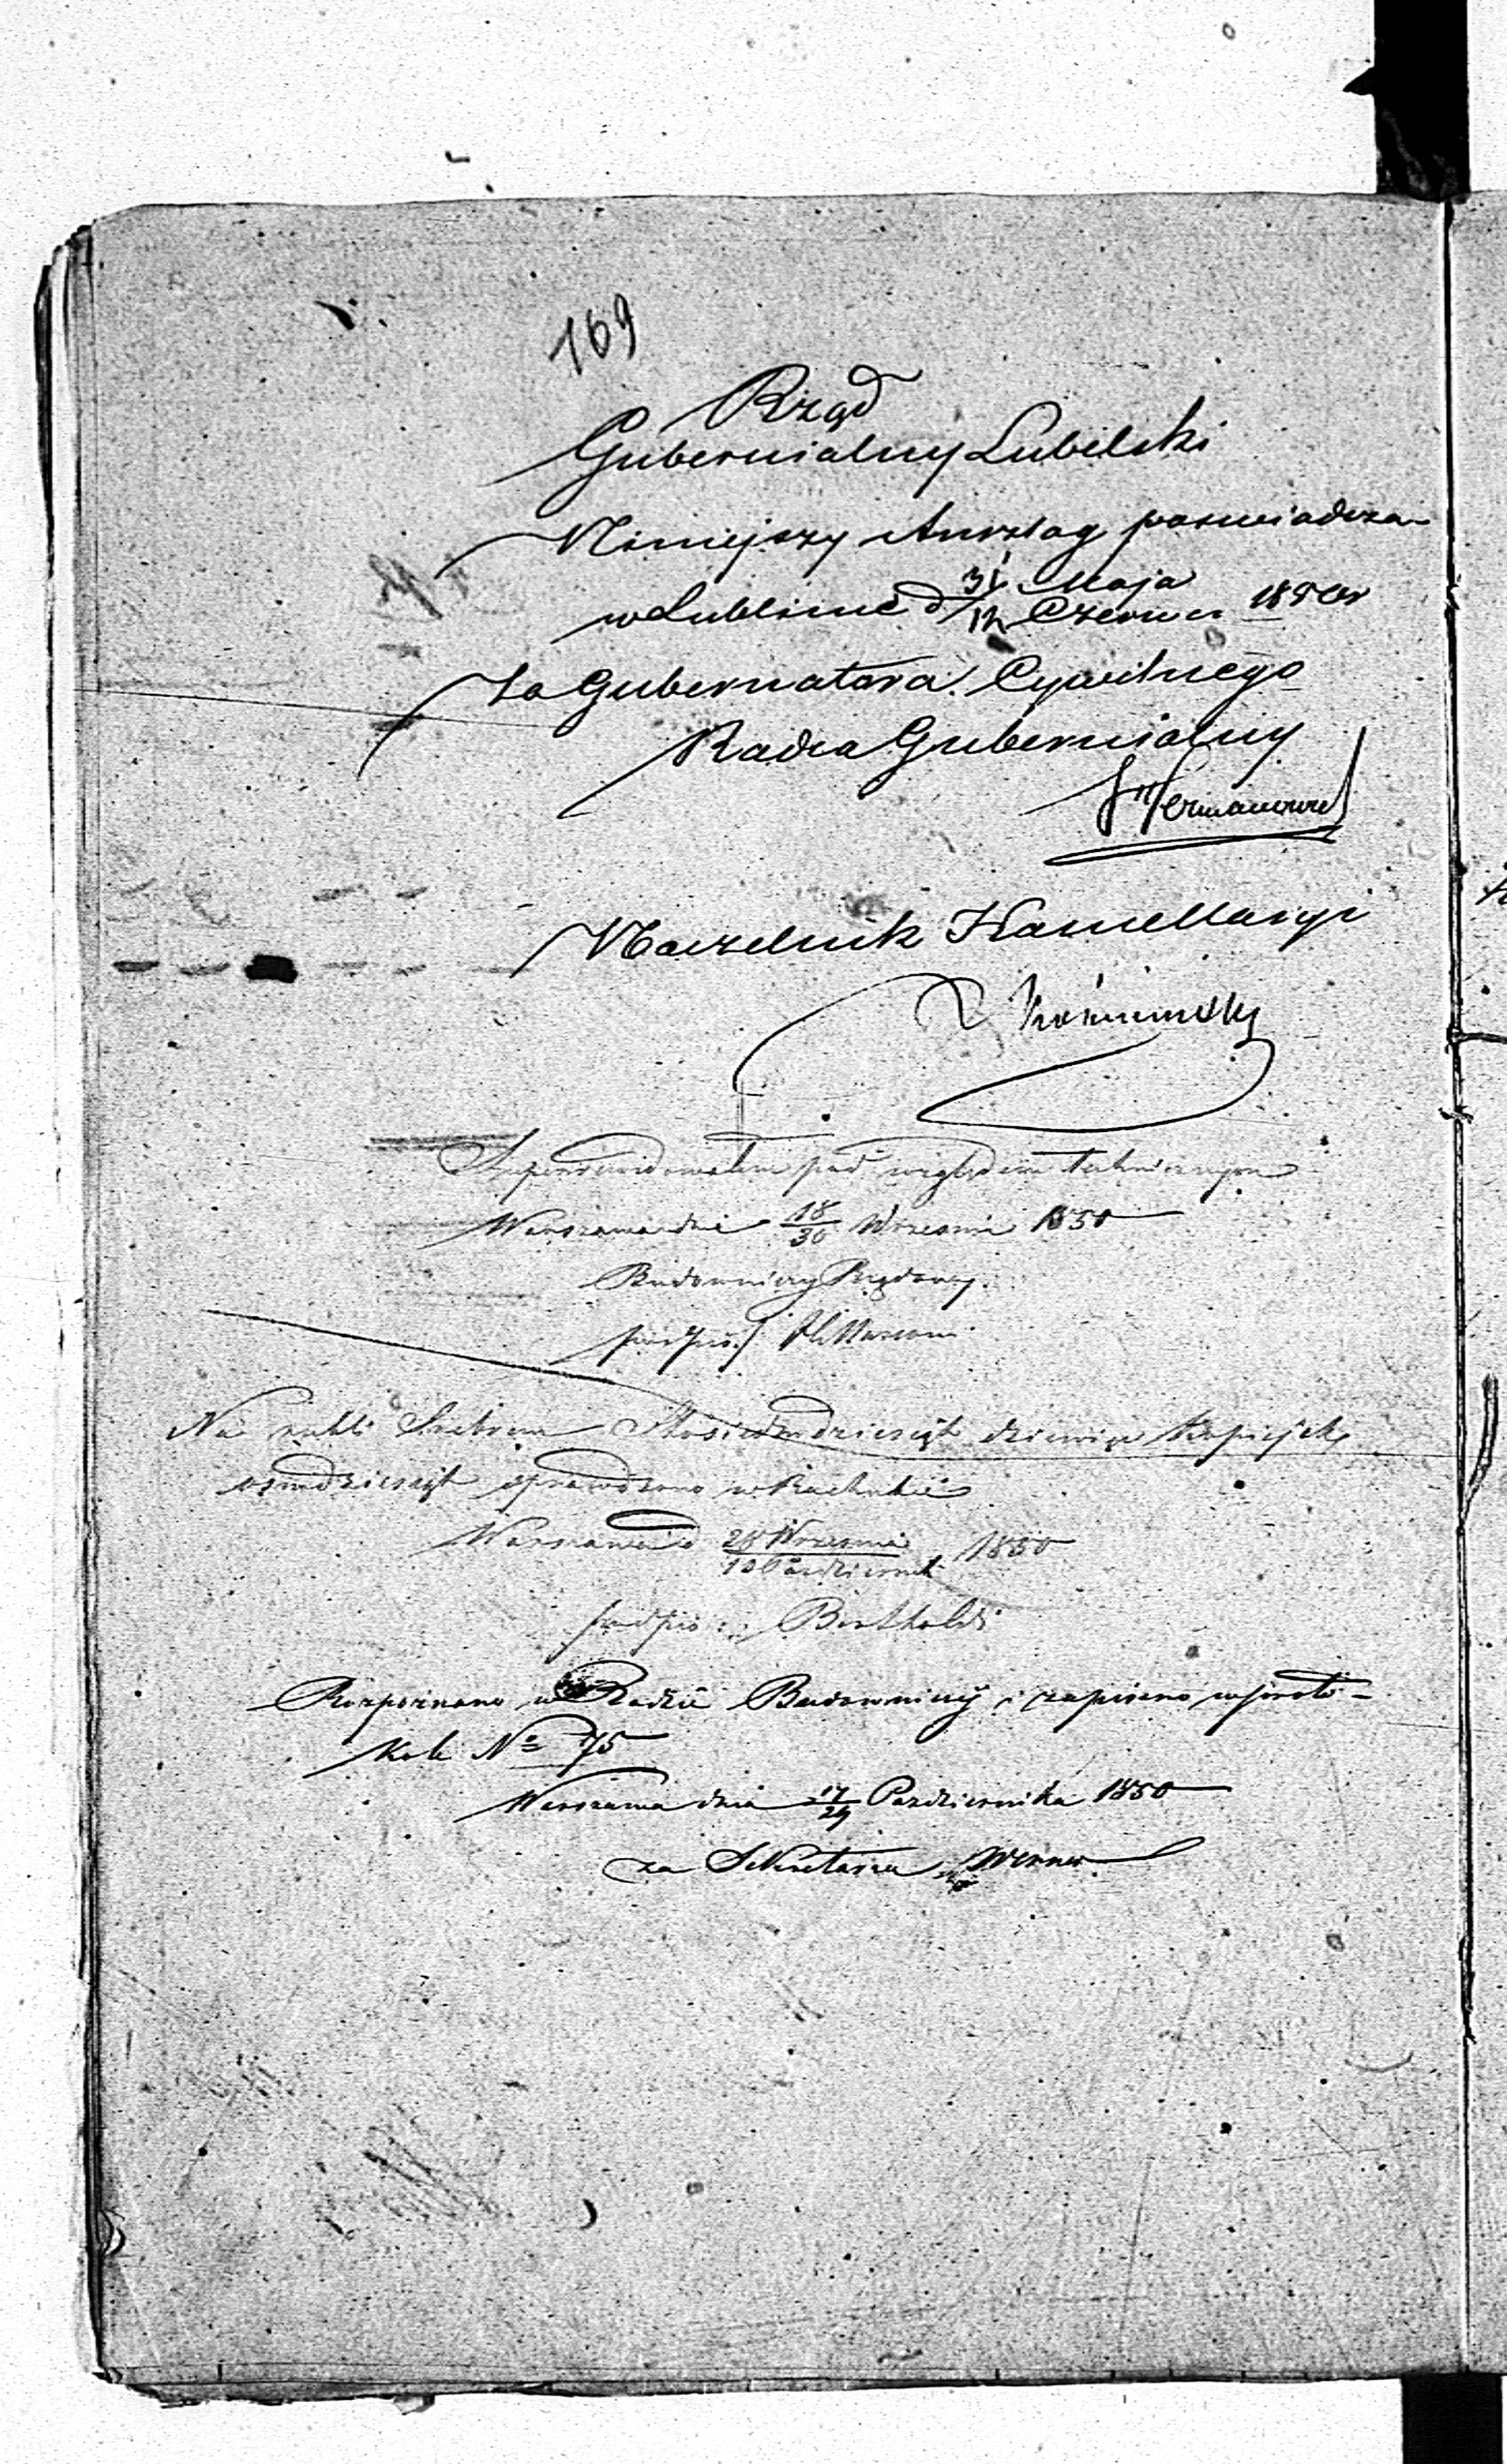 169
Rząd
Gubernialny Lubelski
Niniejszy Anszlag poswiadcza
w Lublinie d 31/12 Maja Czerwca 1850r
Za Gubernatora Cywilnego
Radca Gubernialny
Naczelnik Kancellaryi
Superrewidowałem pod względem technicznym
Warszawa dnia 18/30 Wrzesnia 1850
Budowniczy Rządowy.
podpis.)
Na rubli Srebrem Stosiedmdziesiąt dziewięć kopiejek
osmdziesiąt sprawdzono w Rachubie
Warszawa d 28 Wrzesnia / 10 Październik 1850
podpis: Bertholdi
Rozpoznano w Radzie Budowniczej i zapisano w proto-
kole No 75
Warszawa dnia 17/29 Pazdziernika 1850
za Sekretarza Werner